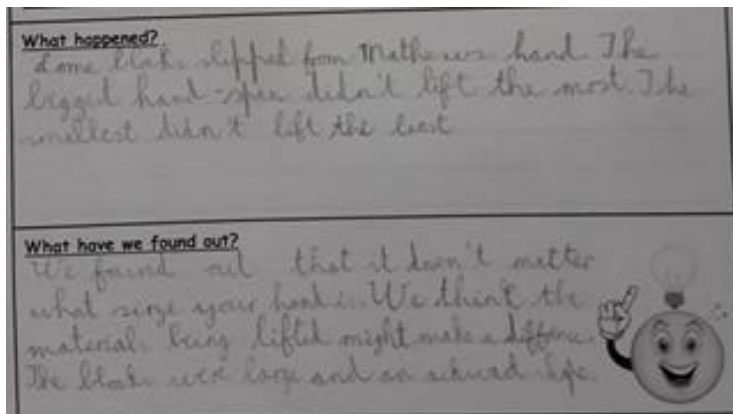 What happened?
Some blocks slipped from Mathews hand. The
biggest hand-span didn't lift the most. The
smallest didn't lift the least
What have we found out?
We found out that it doesn't matter
what size your hand is. We think the
materials being lifted might make a diffence.
The blocks were large and an